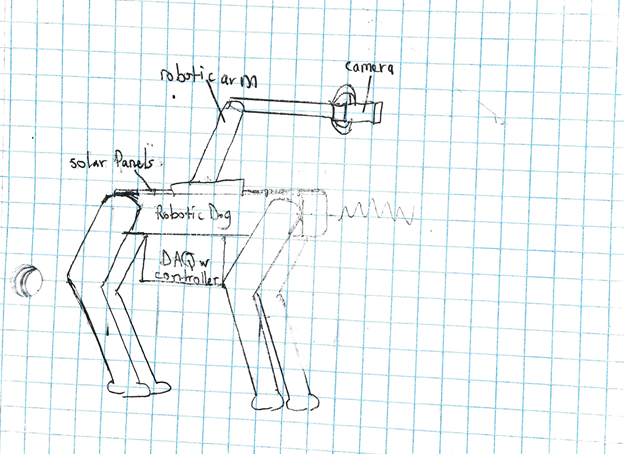 robotic arm
camera
solar Panels
Robotic Dog
DAQ w
controller